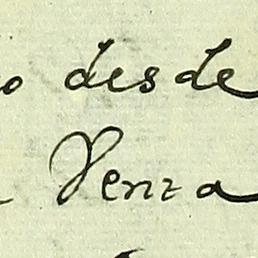 o desde
Venza